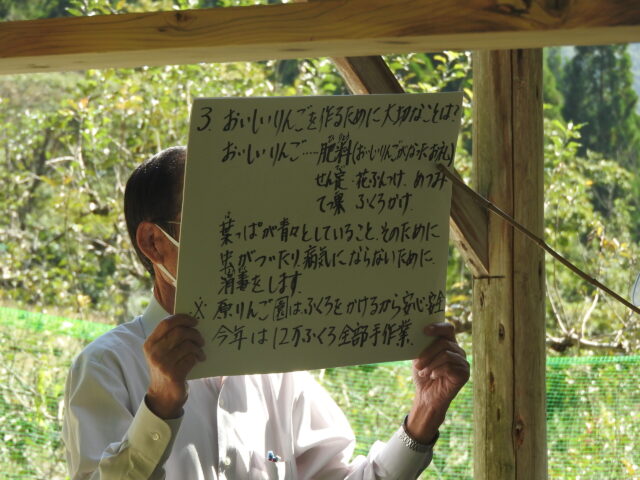 3. おいしいりんごを作るために大切なことは?
おいしいりんご……肥料(おいしいりんごがなったお礼)
せん定・花ぶんつけ、めつみ
てっ果 ふくろがけ、
葉っぱが青々としていること、そのために
虫がついたり、病気にならないために
消毒をします。
※ 原りんご園はふくろをかけるから安心安全
今年は12万ふくろ全部手作業。